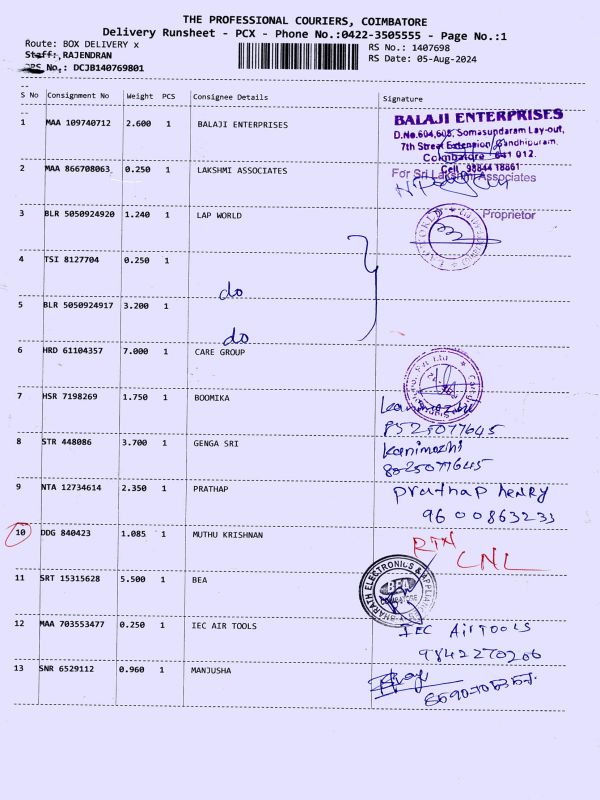 THE PROFESSIONAL COURIERS, COIMBATORE
Delivery Runsheet - PCX - Phone No.:0422-3505555 - Page No.:1
Route: BOX DELIVERY x
RS No.: 1407698
Staff:,RAJENDRAN
RS Date: 05-Aug-2024
No.: DCJB140769801
S No Consignment No Weight PCS Consignee Details Signature
1 MAA 109740712 2.600 1 BALAJI ENTERPRISES
BALAJI ENTERPRISES
D.No.604,605, Somasundaram Lay-out,
7th Street Extension, Gandhipuram,
Coimbatore - 641 012.
Cell: 98844 18661
2 MAA 866708063 0.250 1 LAKSHMI ASSOCIATES
For Sri Lakshmi Associates
Proprietor
3 BLR 5050924920 1.240 1 LAP WORLD
LAP WORLD
4 TSI 8127704 0.250 1
do
5 BLR 5050924917 3.200 1
do
6 HRD 61104357 7.000 1 CARE GROUP
7 HSR 7198269 1.750 1 BOOMIKA
8525077645
8 STR 448086 3.700 1 GENGA SRI
Kanimozhi
8025077645
9 NTA 12734614 2.350 1 PRATHAP
Prathap henry
9600863233
10 DDG 840423 1.085 1 MUTHU KRISHNAN
RTN
CNL
11 SRT 15315628 5.500 1 BEA
BHARATH ELECTRONICS & APPLIANCES
BEA
12 MAA 703553477 0.250 1 IEC AIR TOOLS
IEC AIRTOOLS
9842270206
13 SNR 6529112 0.960 1 MANJUSHA